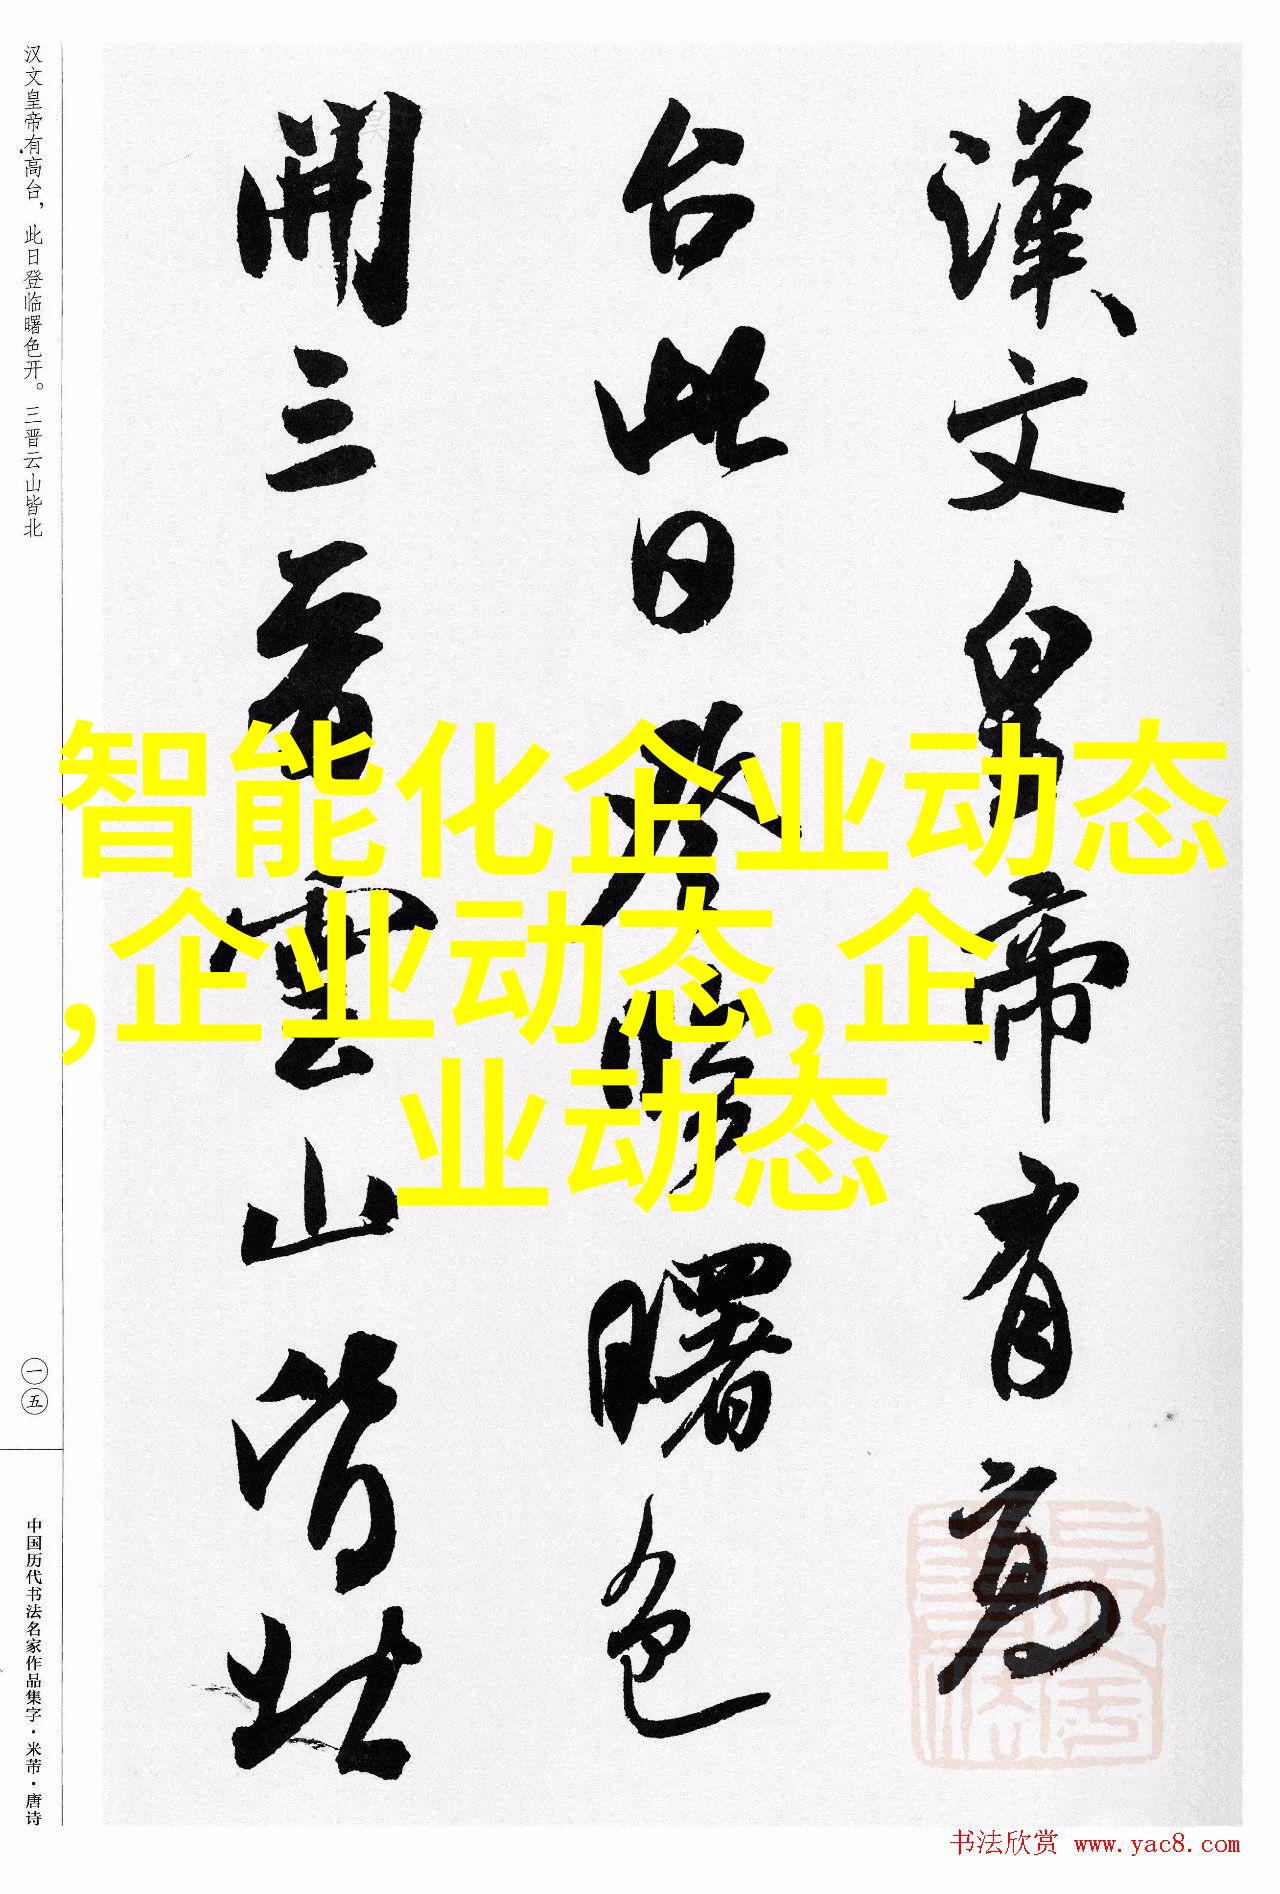 漢文皇帝有高
台此日登臨曙色
開三晋雲山皆北
智能化企业动态
,企业动态,企
业动态
汉文皇帝有高台，此日登临曙色开。三晋云山皆北
一五
中国历代书法名家作品集字·米芾·唐诗
书法欣赏 www.yac8.com